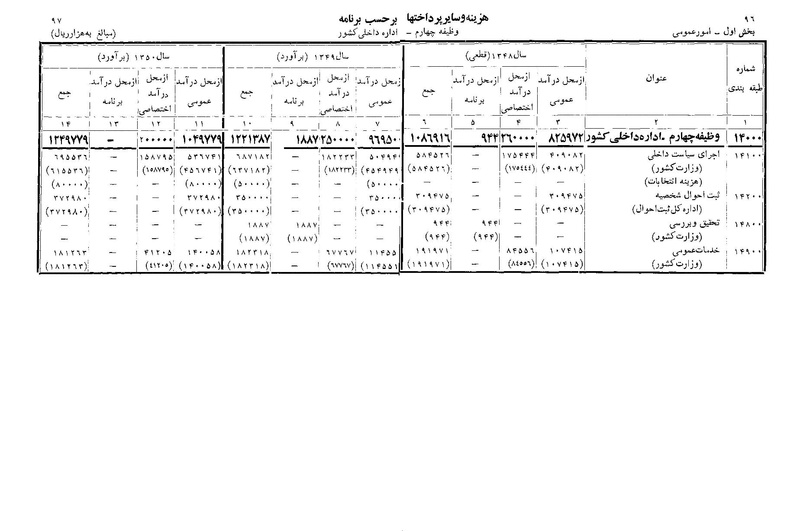 ۹۶
هزینه وسایر پرداختها برحسب برنامه
۹۷
بخش اول - امور عمومی
وظیفه چهارم - اداره داخلی کشور
(مبالغ به هزار ریال)
شماره طبقه بندی | عنوان | سال ۱۳۴۸ (قطعی) | سال ۱۳۴۹ (برآورد) | سال ۱۳۵۰ (برآورد)
از محل درآمد عمومی | از محل درآمد اختصاصی | از محل درآمد برنامه | جمع | از محل درآمد عمومی | از محل درآمد اختصاصی | از محل درآمد برنامه | جمع | از محل درآمد عمومی | از محل درآمد اختصاصی | از محل درآمد برنامه | جمع
۱ | ۲ | ۳ | ۴ | ۵ | ۶ | ۷ | ۸ | ۹ | ۱۰ | ۱۱ | ۱۲ | ۱۳ | ۱۴
۱۴۰۰۰ | وظیفه چهارم - اداره داخلی کشور | ۸۲۵۹۷۲ | ۲۶۰۰۰۰ | ۹۴۴ | ۱۰۸۶۹۱۶ | ۹۶۹۵۰۰ | ۲۵۰۰۰۰ | ۱۸۸۷ | ۱۲۲۱۳۸۷ | ۱۰۴۹۷۷۹ | ۲۰۰۰۰۰ | - | ۱۲۴۹۷۷۹
۱۴۱۰۰ | اجرای سیاست داخلی | ۴۰۹۰۸۲ | ۱۷۵۴۴۴ | - | ۵۸۴۵۲۶ | ۵۰۴۹۴۹ | ۱۸۲۲۳۳ | - | ۶۸۷۱۸۲ | ۵۳۶۷۴۱ | ۱۵۸۷۹۵ | - | ۶۹۵۵۳۶
(وزارت کشور) | (۴۰۹۰۸۲) | (۱۷۵۴۴۴) | - | (۵۸۴۵۲۶) | (۴۵۴۹۴۹) | (۱۸۲۲۳۳) | - | (۶۳۷۱۸۲) | (۴۵۶۷۴۱) | (۱۵۸۷۹۵) | - | (۶۱۵۵۳۶)
(هزینه انتخابات) | - | - | - | - | (۵۰۰۰۰) | - | - | (۵۰۰۰۰) | (۸۰۰۰۰) | - | - | (۸۰۰۰۰)
۱۴۲۰۰ | ثبت احوال شخصیه | ۳۰۹۴۷۵ | - | - | ۳۰۹۴۷۵ | ۳۵۰۰۰۰ | - | - | ۳۵۰۰۰۰ | ۳۷۲۹۸۰ | - | - | ۳۷۲۹۸۰
(اداره کل ثبت احوال) | (۳۰۹۴۷۵) | - | - | (۳۰۹۴۷۵) | (۳۵۰۰۰۰) | - | - | (۳۵۰۰۰۰) | (۳۷۲۹۸۰) | - | - | (۳۷۲۹۸۰)
۱۴۸۰۰ | تحقیق و بررسی | - | - | ۹۴۴ | ۹۴۴ | - | - | ۱۸۸۷ | ۱۸۸۷ | - | - | - | -
(وزارت کشور) | - | - | (۹۴۴) | (۹۴۴) | - | - | (۱۸۸۷) | (۱۸۸۷) | - | - | - | -
۱۴۹۰۰ | خدمات عمومی | ۱۰۷۴۱۵ | ۸۴۵۵۶ | - | ۱۹۱۹۷۱ | ۱۱۴۵۵۱ | ۶۷۷۶۷ | - | ۱۸۲۳۱۸ | ۱۴۰۰۵۸ | ۴۱۲۰۵ | - | ۱۸۱۲۶۳
(وزارت کشور) | (۱۰۷۴۱۵) | (۸۴۵۵۶) | - | (۱۹۱۹۷۱) | (۱۱۴۵۵۱) | (۶۷۷۶۷) | - | (۱۸۲۳۱۸) | (۱۴۰۰۵۸) | (۴۱۲۰۵) | - | (۱۸۱۲۶۳)